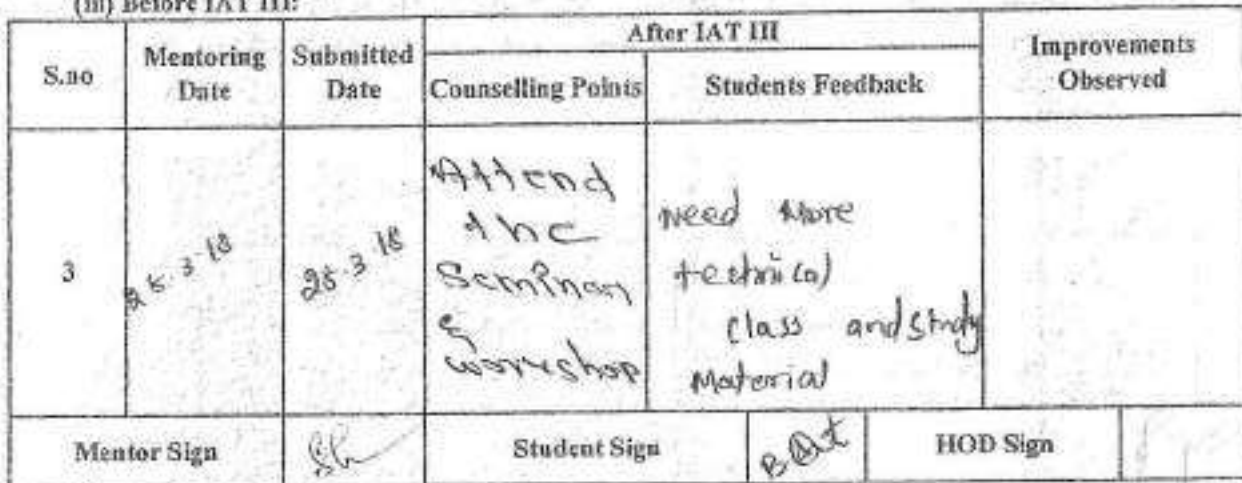 (iii) Before IAT III:
S.no
Mentoring Date
Submitted Date
After IAT III
Counselling Points
Students Feedback
Improvements Observed
3
25.3.18
25.3.18
Attend
the
Seminar
&
workshop
Need More
technical
class and study
Material
Mentor Sign
Student Sign
HOD Sign